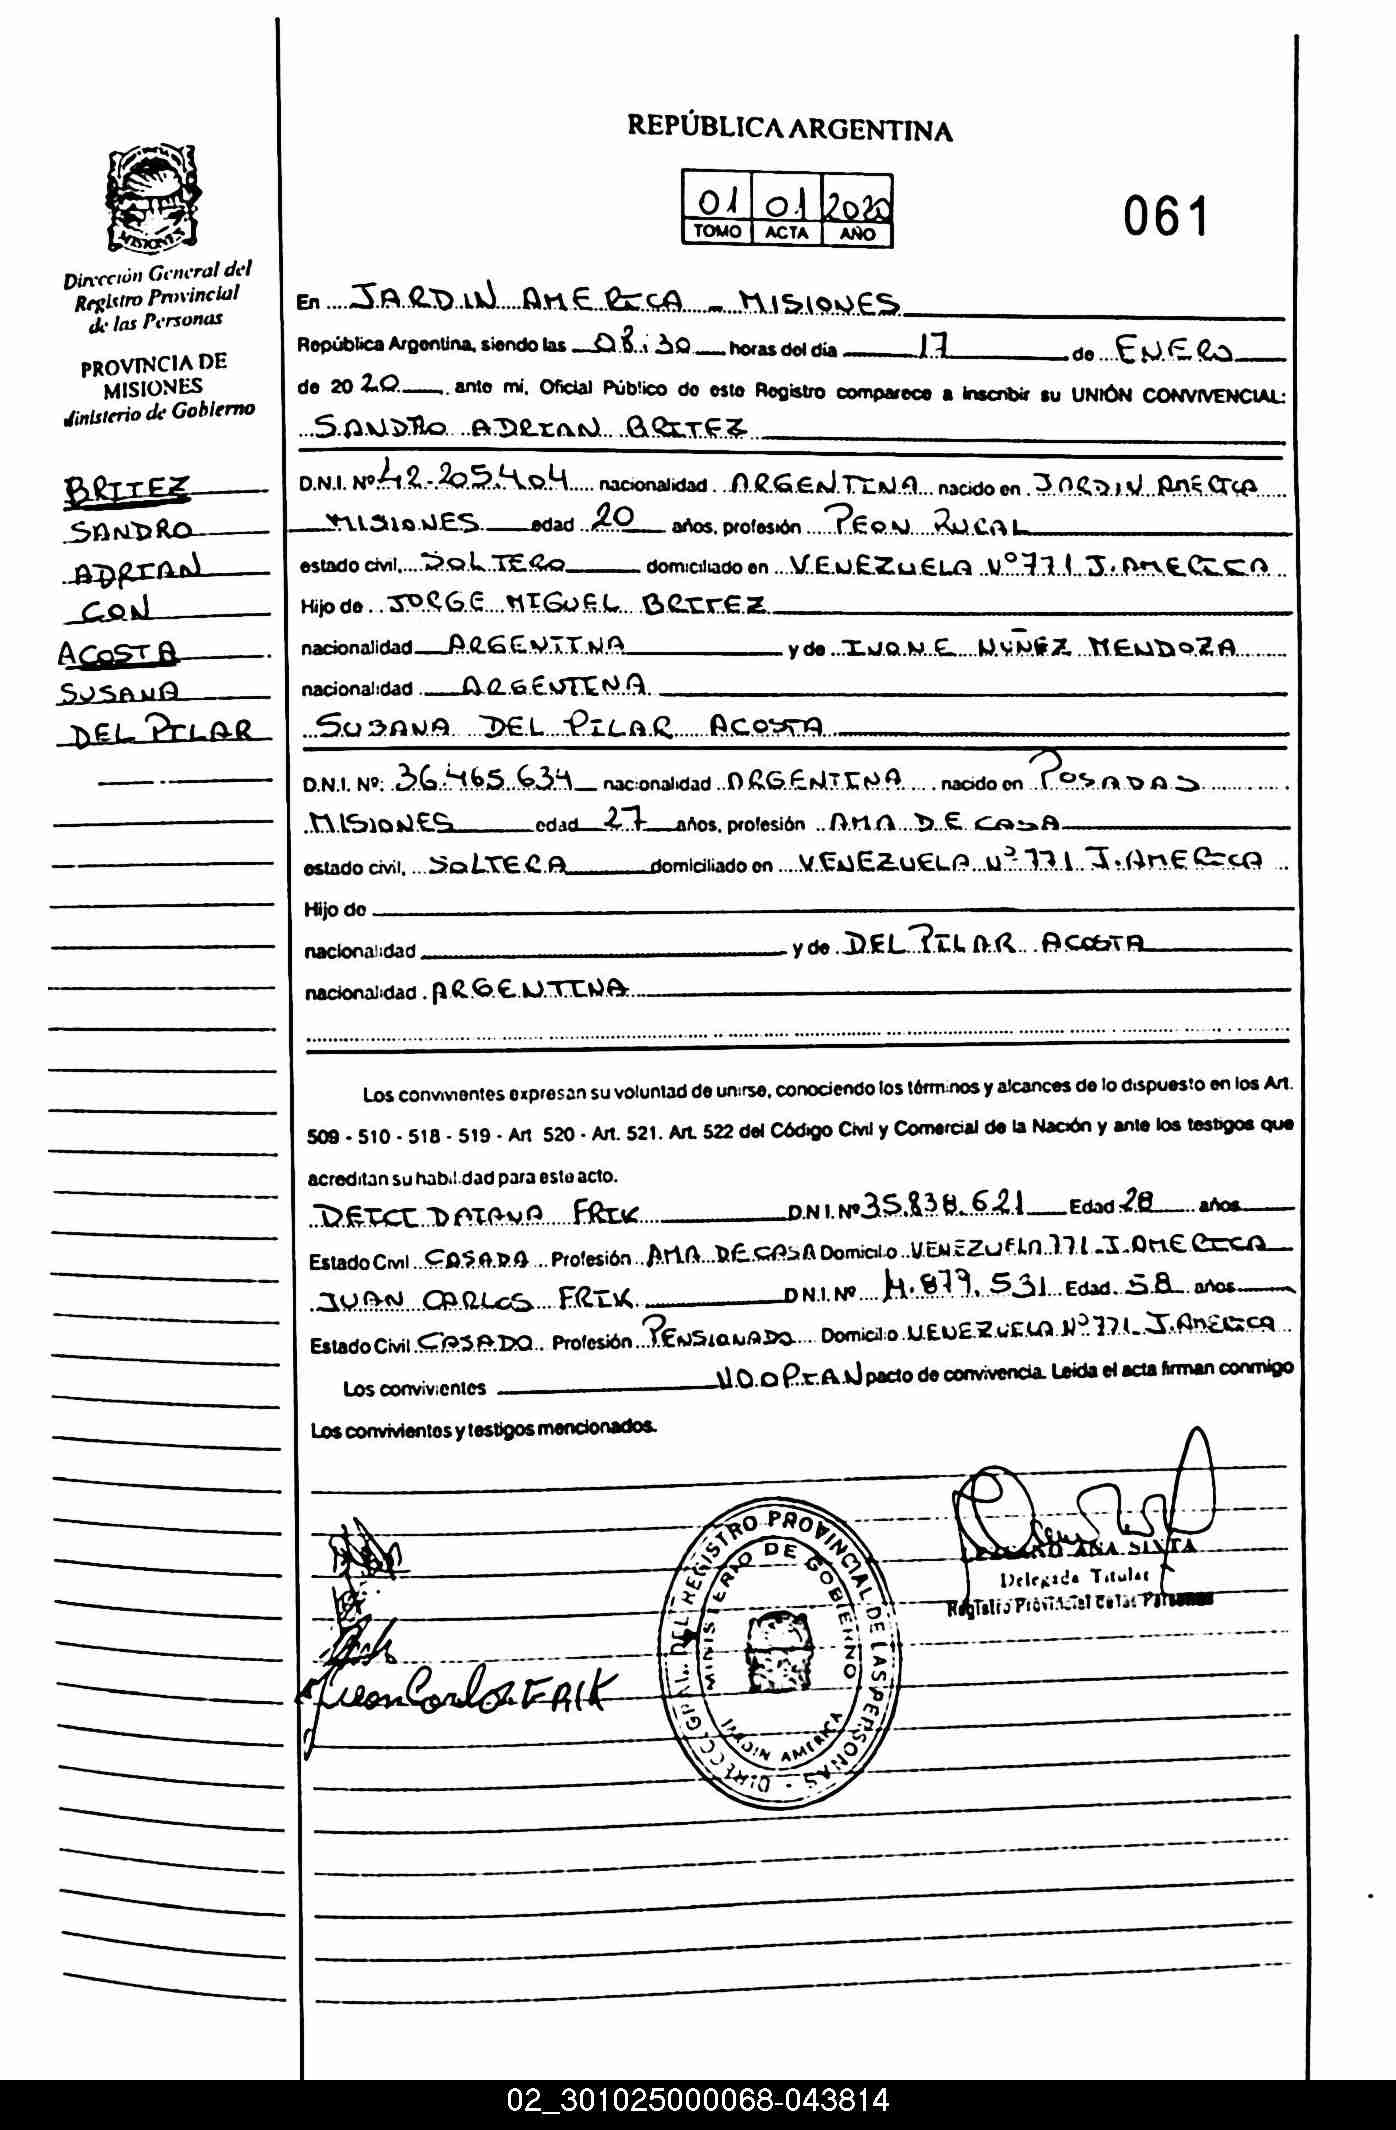 REPÚBLICA ARGENTINA
01 01 2020
TOMO ACTA AÑO
061
MISIONES
Dirección General del
Registro Provincial
de las Personas
PROVINCIA DE
MISIONES
Ministerio de Gobierno
BRITEZ
SANDRO
ADRIAN
CON
ACOSTA
SUSANA
DEL PILAR
En JARDIN AMERICA - MISIONES
República Argentina, siendo las 08:30 horas del día 17 de ENERO
de 2020, ante mi, Oficial Público de este Registro comparece a inscribir su UNIÓN CONVIVENCIAL:
SANDRO ADRIAN BRITEZ
D.N.I. Nº 42.205.404 nacionalidad ARGENTINA nacido en JARDIN AMERICA
MISIONES edad 20 años, profesión PEON RURAL
estado civil, SOLTERO domiciliado en VENEZUELA Nº 771 J. AMERICA
Hijo de JORGE MIGUEL BRITEZ
nacionalidad ARGENTINA y de IVONE NUÑEZ MENDOZA
nacionalidad ARGENTINA
SUSANA DEL PILAR ACOSTA
D.N.I. Nº: 36.465.634 nacionalidad ARGENTINA nacido en POSADAS
MISIONES edad 27 años, profesión AMA DE CASA
estado civil, SOLTERA domiciliado en VENEZUELA Nº 771 J. AMERICA
Hijo de
nacionalidad y de DEL PILAR ACOSTA
nacionalidad ARGENTINA
Los convivientes expresan su voluntad de unirse, conociendo los términos y alcances de lo dispuesto en los Art.
509 - 510 - 518 - 519 - Art 520 - Art. 521. Art. 522 del Código Civil y Comercial de la Nación y ante los testigos que
acreditan su habilidad para este acto.
DEICI DAIANA FRIK D.N.I. Nº 35.838.621 Edad 28 años
Estado Civil CASADA Profesión AMA DE CASA Domicilio VENEZUELA 771 J. AMERICA
JUAN CARLOS FRIK D.N.I. Nº 14.879.531 Edad 58 años
Estado Civil CASADO Profesión PENSIONADO Domicilio VENEZUELA Nº 771 J. AMERICA
Los convivientes NO OPTAN pacto de convivencia. Leída el acta firman conmigo
Los convivientes y testigos mencionados.
Juan Carlos FRIK
DIRECC. GRAL. DEL REGISTRO PROVINCIAL DE LAS PERSONAS
MINISTERIO DE GOBIERNO
JARDIN AMERICA
ANA SIXTA
Delegada Titular
Registro Provincial de las Personas
02_301025000068-043814